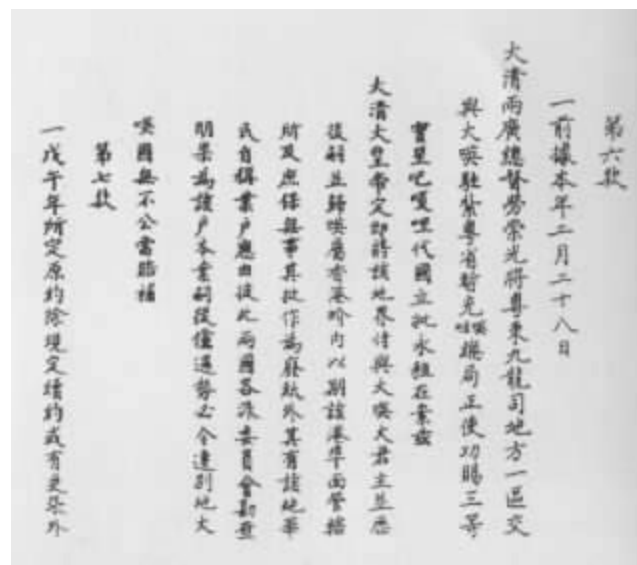 第六款
一前據本年二月二十八日
大清兩廣總督勞崇光將粵東九龍司地方一區交
與大𠸄駐紮粵省暫充𠸄咭總局正使功賜三等
寶星吧嗄哩代國立批永租在案茲
大清大皇帝定即將該地界付與大𠸄大君主並歷
後嗣並歸𠸄屬香港吤內以期該港埠面管轄
所及庶保無事其批作為廢紙外其有該地華
民自稱業戶應由彼此兩國各派委員會勘查
明果為該戶本業嗣後儻遇勢必令遷別地大
𠸄國無不公當賠補
第七款
一戊午年所定原約除現定續約或有更張外